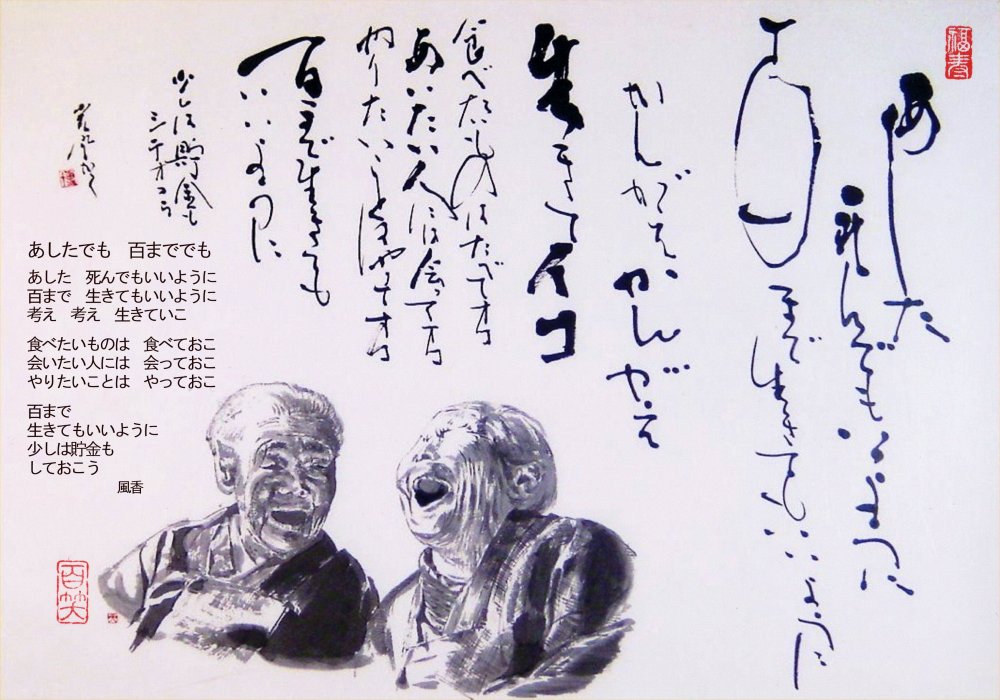 福寿
あした
死んでもいいように
百まで生きてもいいように
かんがえ
かんがえ
生きてイコ
食べたいものはたべてオコ
あいたい人には会ってオコ
やりたいことはやってオコ
百まで生きても
いいように
少しは貯金も
シテオコウ
あしたでも　百まででも
あした　死んでもいいように
百まで　生きてもいいように
考え　考え　生きていこ
食べたいものは　食べておこ
会いたい人には　会っておこ
やりたいことは　やっておこ
百まで
生きてもいいように
少しは貯金も
しておこう
風香
百笑